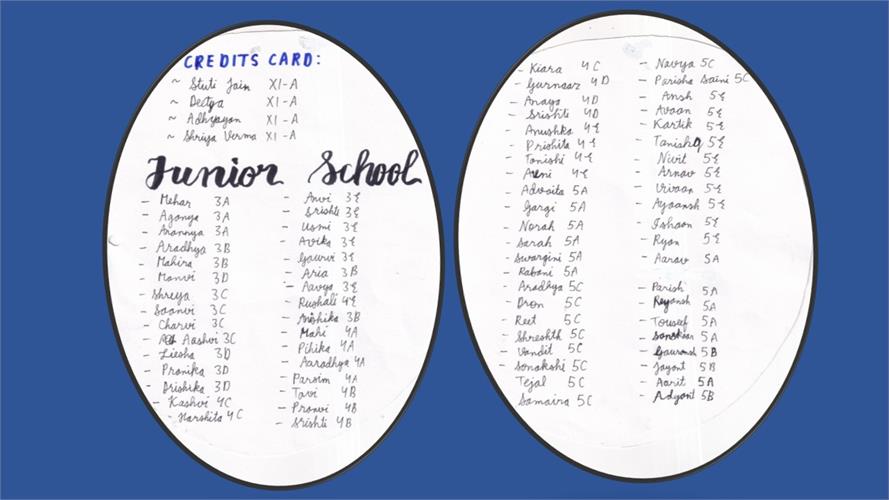 CREDITS CARD:
~ Stuti Jain XI-A
~ Deitya XI-A
~ Adhyayan XI-A
~ Shriya Verma XI-A
Junior School
- Mehar 3A
- Agonya 3A
- Anannya 3A
- Aradhya 3B
- Mahira 3B
- Manvi 3D
- Shreya 3C
- Saanvi 3C
- Charvi 3C
- Aashvi 3C
- Liesha 3D
- Pranika 3D
- Drishika 3D
- Kashvi 4C
- Harshita 4C
- Anvi 3E
- Srishti 3E
- Usmi 3E
- Avika 3E
- Gaurvi 3E
- Aria 3B
- Aavya 3E
- Rushali 4E
- Anishika 3B
- Mahi 4A
- Pihika 4A
- Aaradhya 4A
- Parsim 4A
- Tavi 4B
- Pranvi 4B
- Srishti 4B
- Kiara 4C
- Gurnaaz 4D
- Anaya 4D
- Srishti 4D
- Anushka 4E
- Prishita 4E
- Tanishi 4E
- 4E
- Advaita 5A
- Gargi 5A
- Norah 5A
- Sarah 5A
- Swargini 5A
- Rabani 5A
- Aradhya 5C
- Dron 5C
- Reet 5C
- Shreshth 5C
- Vandit 5C
- Sonakshi 5C
Tejal 5C
Samaira 5C
- Navya 5C
- Parisha Saini 5C
- Ansh 5E
- Avaan 5E
- Kartik 5E
- Tanishq 5E
- Nivit 5E
- Arnav 5E
- Urivaan 5E
- Ayaansh 5E
- Ishaan 5E
- Ryan 5E
- Aarav 5A
- Parish 5A
- Reyansh 5A
- Touseef 5A
- 5A
- Gauransh 5B
- Jayant 5B
- Aarit 5A
- Adyant 5B